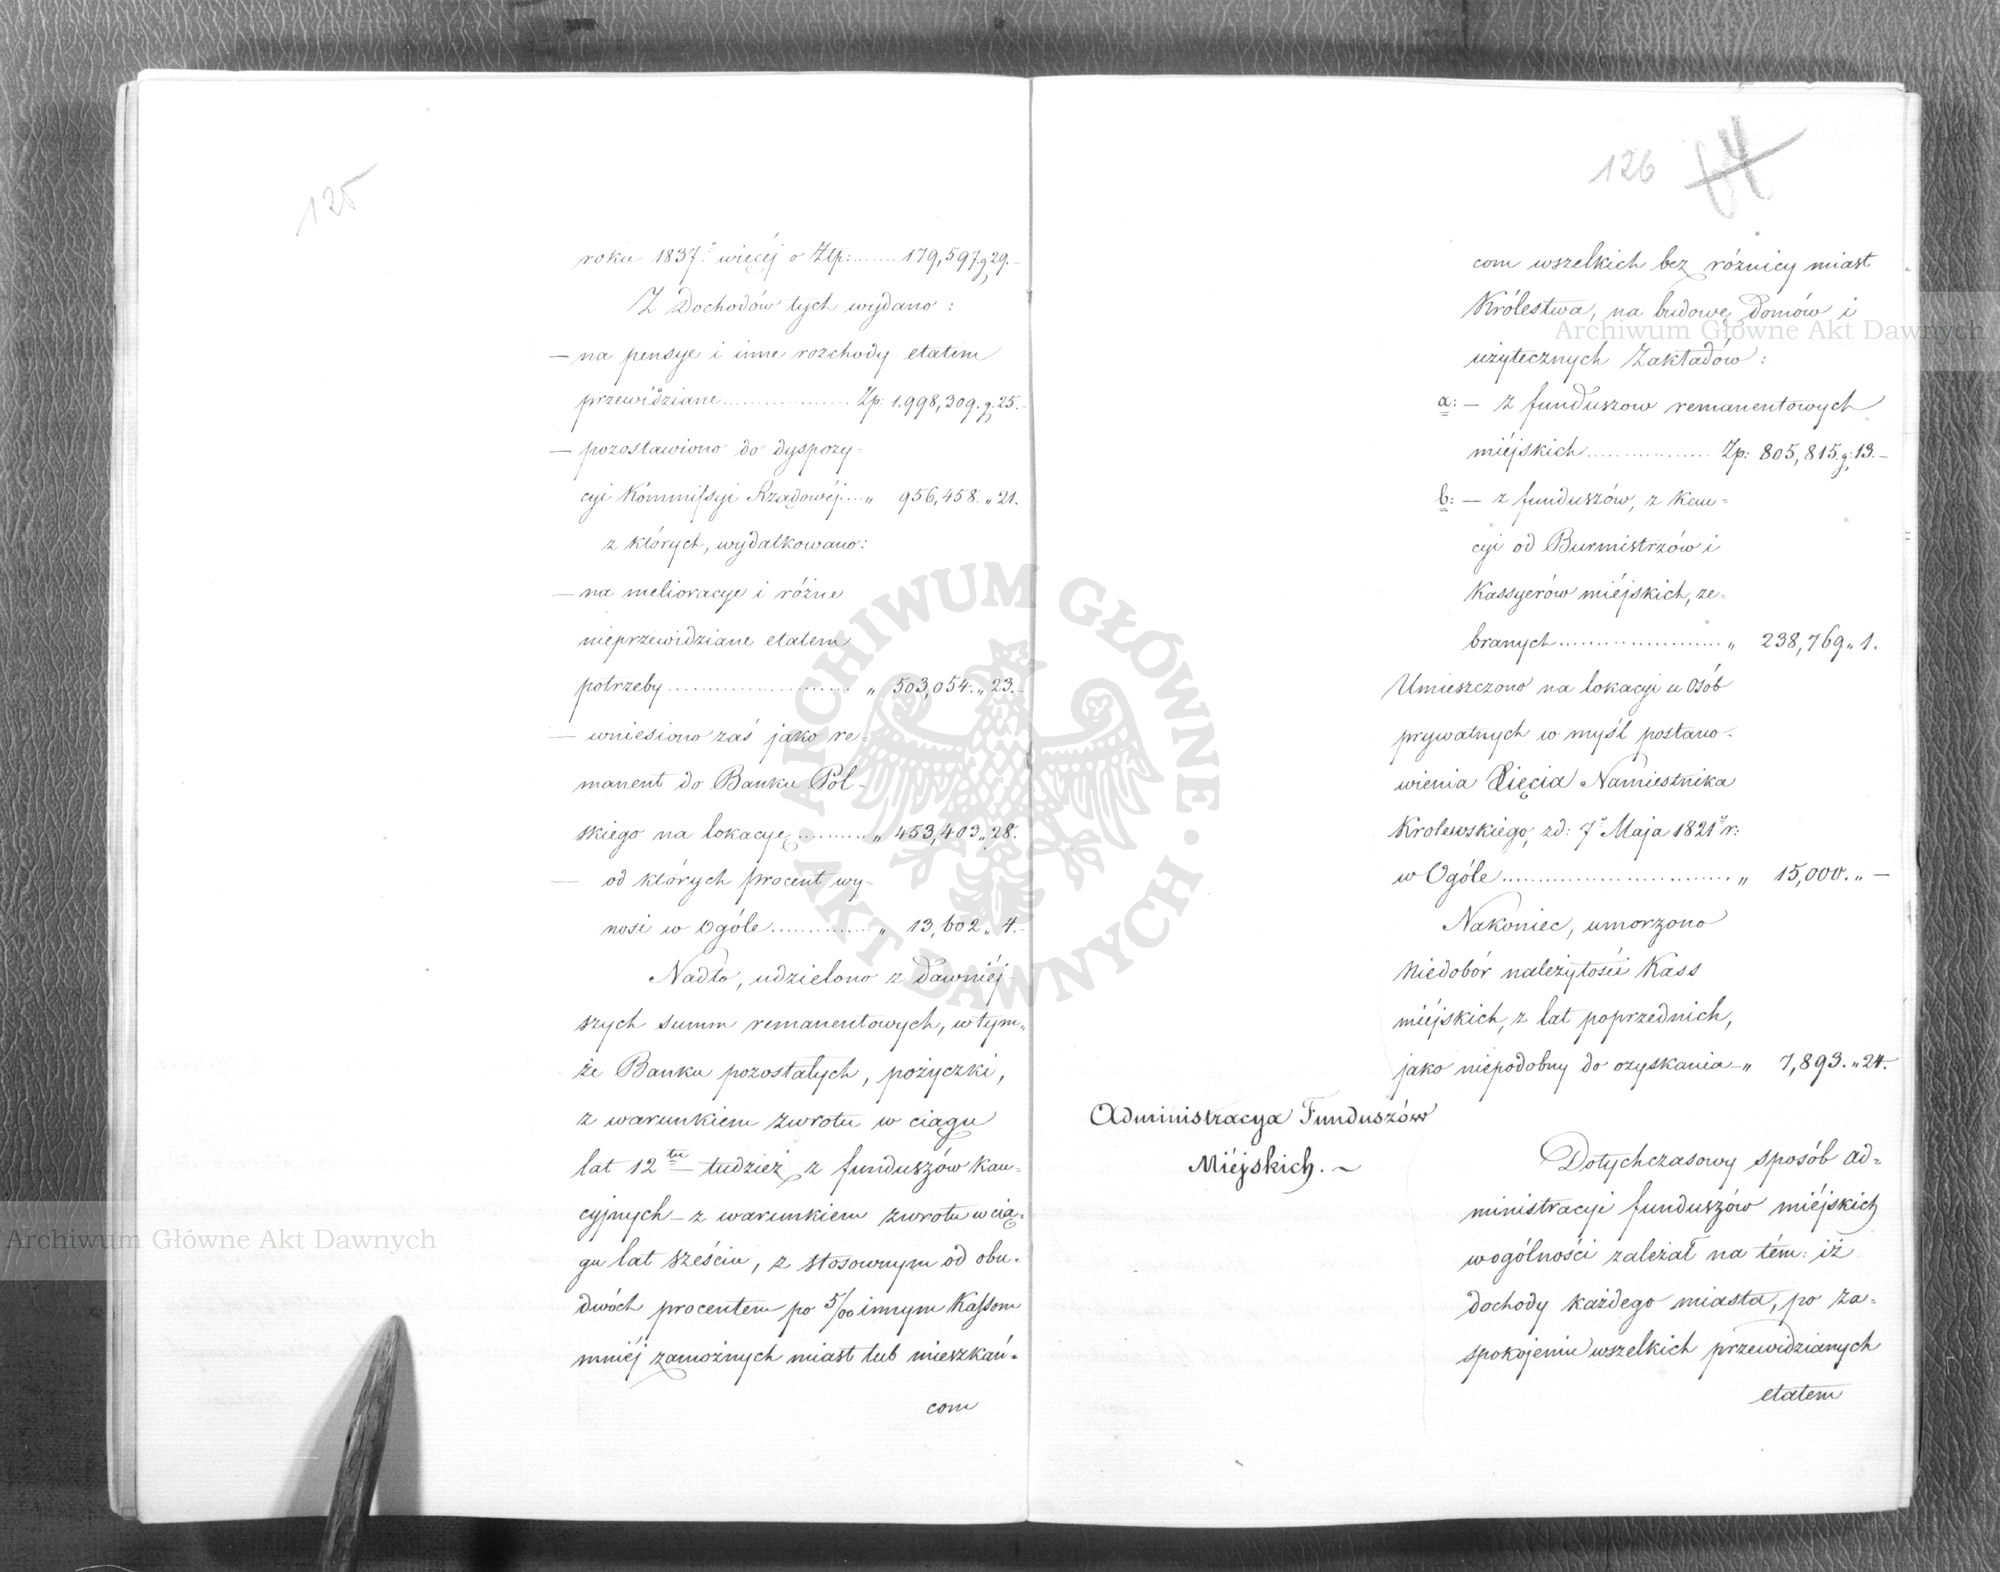 125
roku 1837º więcéj o Złp: ........ 179,597. g 29. –
Z Dochodów tych wydano :
— na pensye i inne rozchody etatem
przewidziane .................... Zp: 1.998,309. g. 25. –
— pozostawiono do dyspozy-
cyi Kommissyi Rządowéj .... „ 956,458. „ 21.
z których, wydatkowano:
— na melioracye i różne
nieprzewidziane etatem
potrzeby ........................ „ 503,054. „ 23. –
— wniesiono zaś jako re-
manent do Banku Pol-
skiego na lokacyę .......... „ 453,403 „ 28.
— od których procent wy-
nosi w Ogóle .............. „ 13,602 „ 4. –
Nadto, udzielono z dawniéj-
szych summ remanentowych, w tym-
że Banku pozostałych, pożyczki,
z warunkiem zwrotu w ciągu
lat 12tu – tudzież z funduszów Kau-
cyjnych – z warunkiem zwrotu w cią-
gu lat sześciu, z stosownym od obu-
dwóch procentem po 5/00 innym Kassom
mniéj zamożnych miast lub mieszkań-
com
126 64
com wszelkich bez różnicy miast
Królestwa, na budowę domów i
użytecznych Zakładów :
a: — z funduszow remanentowych
miéjskich .................. Zp: 805,815. g: 13. –
b: — z funduszów, z Kau-
cyi od Burmistrzów i
Kassyerów miéjskich, ze-
branych ....................... „ 238,769 „ 1.
Umieszczono na lokacyi u Osób
prywatnych w myśl postano-
wienia Xięcia Namiestnika
Krolewskiego, zd: 7º Maja 1821º r:
w Ogóle ............................... „ 15,000. „ —
Nakoniec, umorzono
Niedobór należytości Kass
miéjskich, z lat poprzednich,
jako niepodobny do ozyskania – „ 7,893. „ 24. –
Administracya Funduszów
Miéjskich. ~
Dotychczasowy sposób ad-
ministracyi funduszów miéjskich
w ogólności zależał na tém: iż
dochody każdego miasta, po za-
spokojeniu wszelkich przewidzianych
etatem
Archiwum Główne Akt Dawnych
Archiwum Główne Akt Dawnych
ARCHIWUM GŁÓWNE · AKT DAWNYCH ·